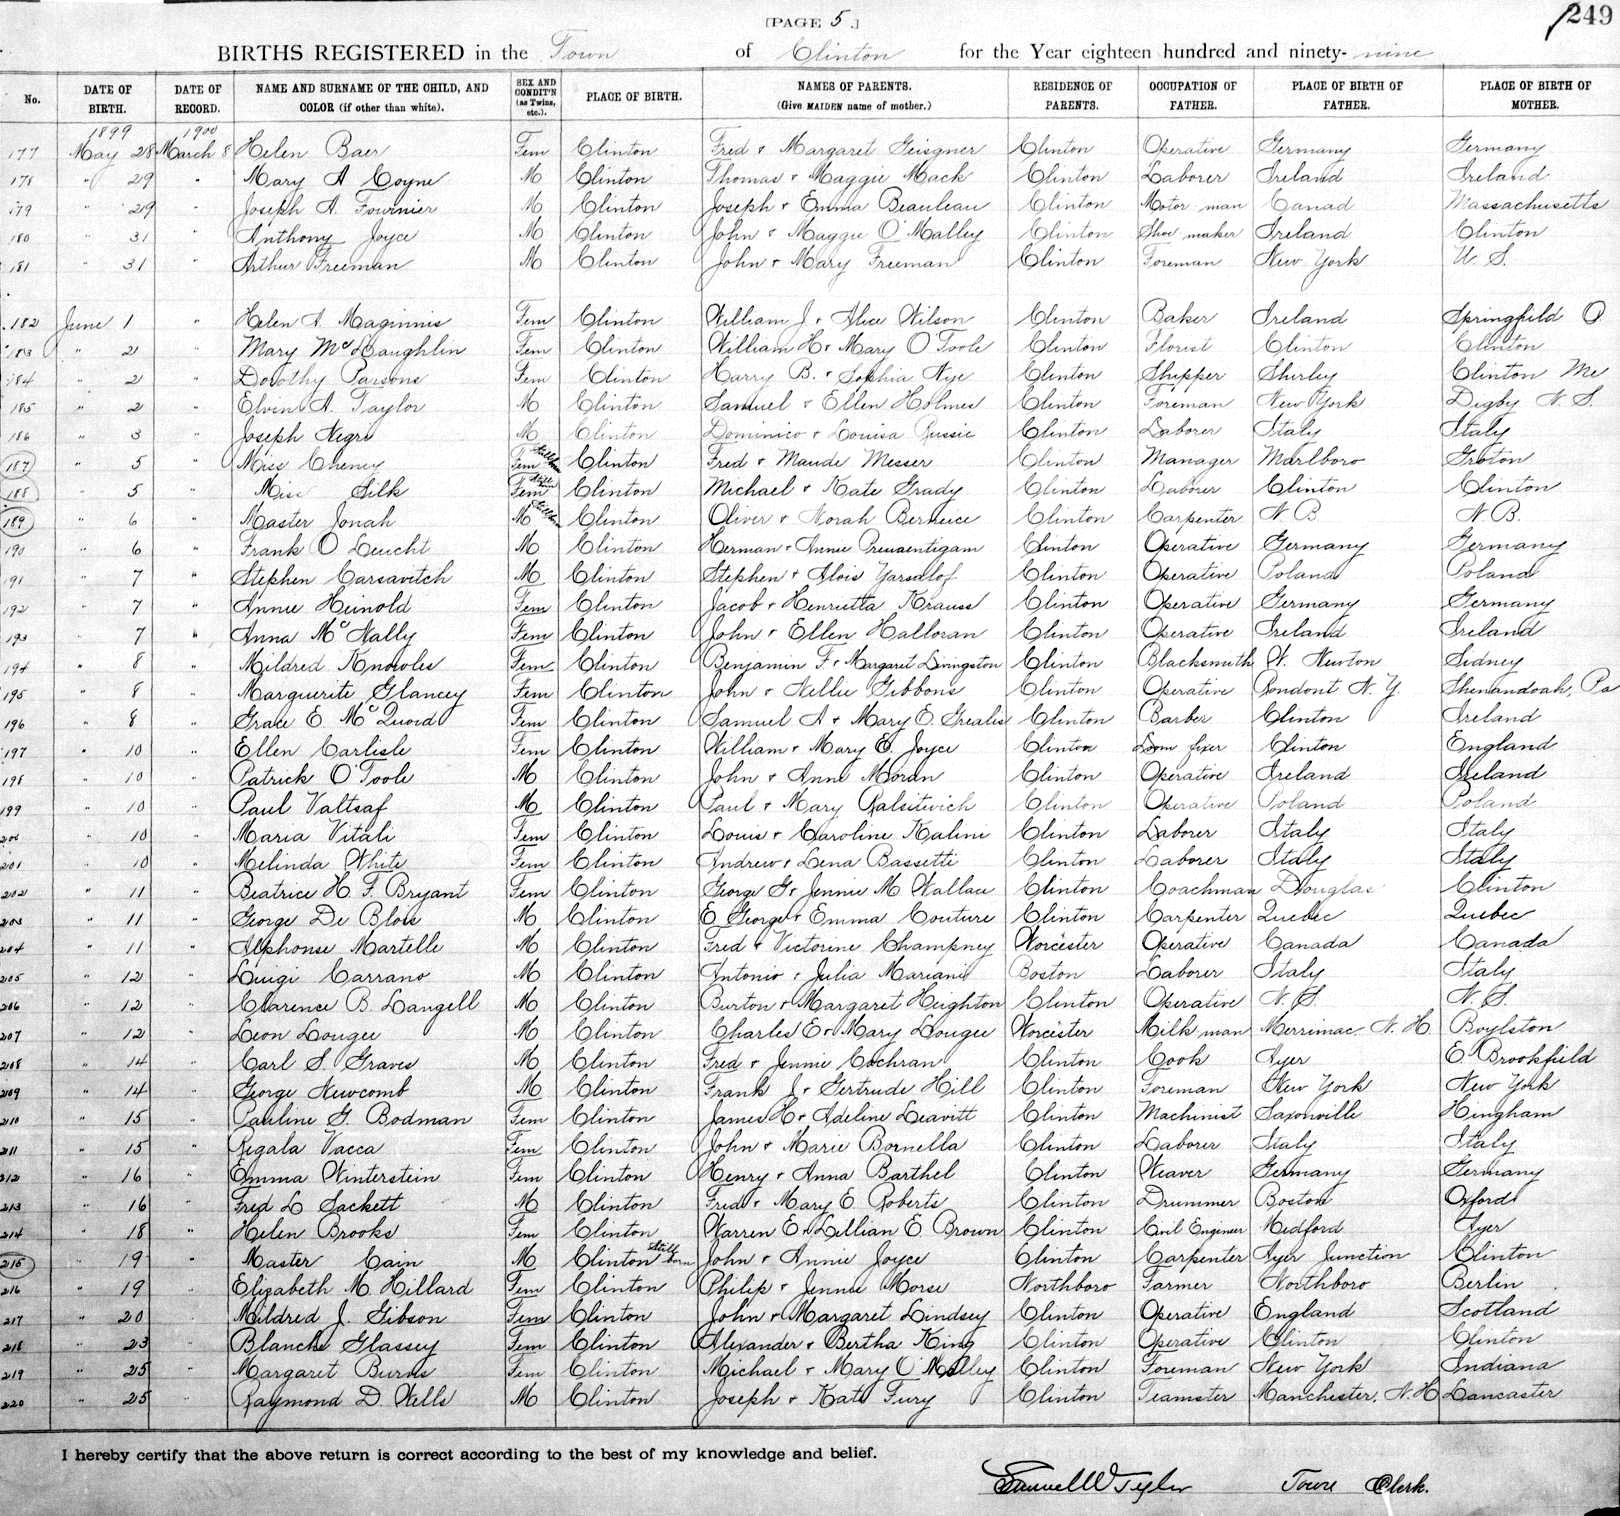 [PAGE 5.] 249
BIRTHS REGISTERED in the Town of Clinton for the Year eighteen hundred and ninety-nine
No. DATE OF BIRTH. DATE OF RECORD. NAME AND SURNAME OF THE CHILD, AND COLOR (if other than white). SEX AND CONDIT'N (as Twins, etc.). PLACE OF BIRTH. NAMES OF PARENTS. (Give MAIDEN name of mother.) RESIDENCE OF PARENTS. OCCUPATION OF FATHER. PLACE OF BIRTH OF FATHER. PLACE OF BIRTH OF MOTHER.
1899 1900
177 May 28 March 8 Helen Baer Fem Clinton Fred & Margaret Geisgner Clinton Operative Germany Germany
178 " 29 " Mary A Coyne M Clinton Thomas & Maggie Mack Clinton Laborer Ireland Ireland
179 " 29 " Joseph A. Fournier M Clinton Joseph & Emma Beauleau Clinton Motor man Canad Massachusetts
180 " 31 " Anthony Joyce M Clinton John & Maggie O'Malley Clinton Shoe maker Ireland Clinton
181 " 31 " Arthur Freeman M Clinton John & Mary Freeman Clinton Foreman New York U. S.
182 June 1 " Helen A. Maginnis Fem Clinton William J & Alice Wilson Clinton Baker Ireland Springfield O
183 " 2 " Mary McLaughlin Fem Clinton William H & Mary O'Toole Clinton Florist Clinton Clinton
184 " 2 " Dorothy Parsons Fem Clinton Harry B. & Sophia Nye Clinton Shipper Shirley Clinton Me
185 " 2 " Elvin A. Taylor M Clinton Samuel & Ellen Holmes Clinton Foreman New York Digby N. S.
186 " 3 " Joseph Negri M Clinton Dominico & Louisa Russie Clinton Laborer Italy Italy
187 " 5 " Miss Cheney Fem Stillborn Clinton Fred & Maude Messer Clinton Manager Marlboro Groton
188 " 5 " Miss Silk Fem Still born Clinton Michael & Kate Grady Clinton Laborer Clinton Clinton
189 " 6 " Master Jonah M Stillborn Clinton Oliver & Norah Berneice Clinton Carpenter N B. N B.
190 " 6 " Frank O Leucht M Clinton Herman & Annie Clinton Operative Germany Germany
191 " 7 " Stephen Carsavitch M Clinton Stephen & Alois Yarsalof Clinton Operative Poland Poland
192 " 7 " Annie Heinold Fem Clinton Jacob & Henrietta Krauss Clinton Operative Germany Germany
193 " 7 " Anna McNally Fem Clinton John & Ellen Halloran Clinton Operative Ireland Ireland
194 " 8 " Mildred Knowles Fem Clinton Benjamin F. & Margaret Livingston Clinton Blacksmith W. Newton Sidney
195 " 8 " Marguerite Glancey Fem Clinton John & Nellie Gibbons Clinton Operative Rondont N. Y Shenandoah, Pa
196 " 8 " Grace E. McQuoid Fem Clinton Samuel A & Mary E. Grealis Clinton Barber Clinton Ireland
197 " 10 " Ellen Carlisle Fem Clinton William & Mary E. Joyce Clinton Loom fixer Clinton England
198 " 10 " Patrick O'Toole M Clinton John & Anne Moran Clinton Operative Ireland Ireland
199 " 10 " Paul Valtsaf M Clinton Paul & Mary Ralsitivich Clinton Operative Poland Poland
200 " 10 " Maria Vitali Fem Clinton Louis & Caroline Kalini Clinton Laborer Italy Italy
201 " 10 " Melinda White Fem Clinton Andrew & Lena Bassetti Clinton Laborer Italy Italy
202 " 11 " Beatrice H. F. Bryant Fem Clinton George G & Jennie M Wallace Clinton Coachman Douglas Clinton
203 " 11 " George De Blois M Clinton E George & Emma Couture Clinton Carpenter Quebec Quebec
204 " 11 " Alphonse Martelle M Clinton Fred & Victorine Champney Worcester Operative Canada Canada
205 " 12 " Luigi Carrano M Clinton Antonio & Julia Mariani Boston Laborer Italy Italy
206 " 12 " Clarence B. Langell M Clinton Burton & Margaret Heighton Clinton Operative N. S. N. S.
207 " 12 " Leon Lougee M Clinton Charles E & Mary Lougee Worcester Milk man Merrimac N. H Boylston
208 " 14 " Carl S. Graves M Clinton Fred & Jennie Cochran Clinton Cook Ayer E. Brookfield
209 " 14 " George Newcomb M Clinton Frank J. & Gertrude Hill Clinton Foreman New York New York
210 " 15 " Pauline G. Bodman Fem Clinton James H & Adeline Leavitt Clinton Machinist Saxonville Hingham
211 " 15 " Regala Vacca Fem Clinton John & Marie Bornella Clinton Laborer Italy Italy
212 " 16 " Emma Winterstein Fem Clinton Henry & Anna Barthel Clinton Weaver Germany Germany
213 " 16 " Fred L Sackett M Clinton Fred & Mary E Roberts Clinton Drummer Boston Oxford
214 " 18 " Helen Brooks Fem Clinton Warren E & Lillian E Brown Clinton Civil Engineer Medford Ayer
215 " 19 " Master Cain M Clinton Still born John & Annie Joyce Clinton Carpenter Ayer Junction Clinton
216 " 19 " Elizabeth M. Hillard Fem Clinton Philip & Jennie Morse Northboro Farmer Northboro Berlin
217 " 20 " Mildred J. Gibson Fem Clinton John & Margaret Lindsey Clinton Operative England Scotland
218 " 23 " Blanche Glassey Fem Clinton Alexander & Bertha King Clinton Operative Clinton Clinton
219 " 25 " Margaret Burns Fem Clinton Michael & Mary O'Malley Clinton Foreman New York Indiana
220 " 25 " Raymond D. Wells M Clinton Joseph & Kate Fury Clinton Teamster Manchester, N. H Lancaster
I hereby certify that the above return is correct according to the best of my knowledge and belief.
Samuel W Tyler Town Clerk.